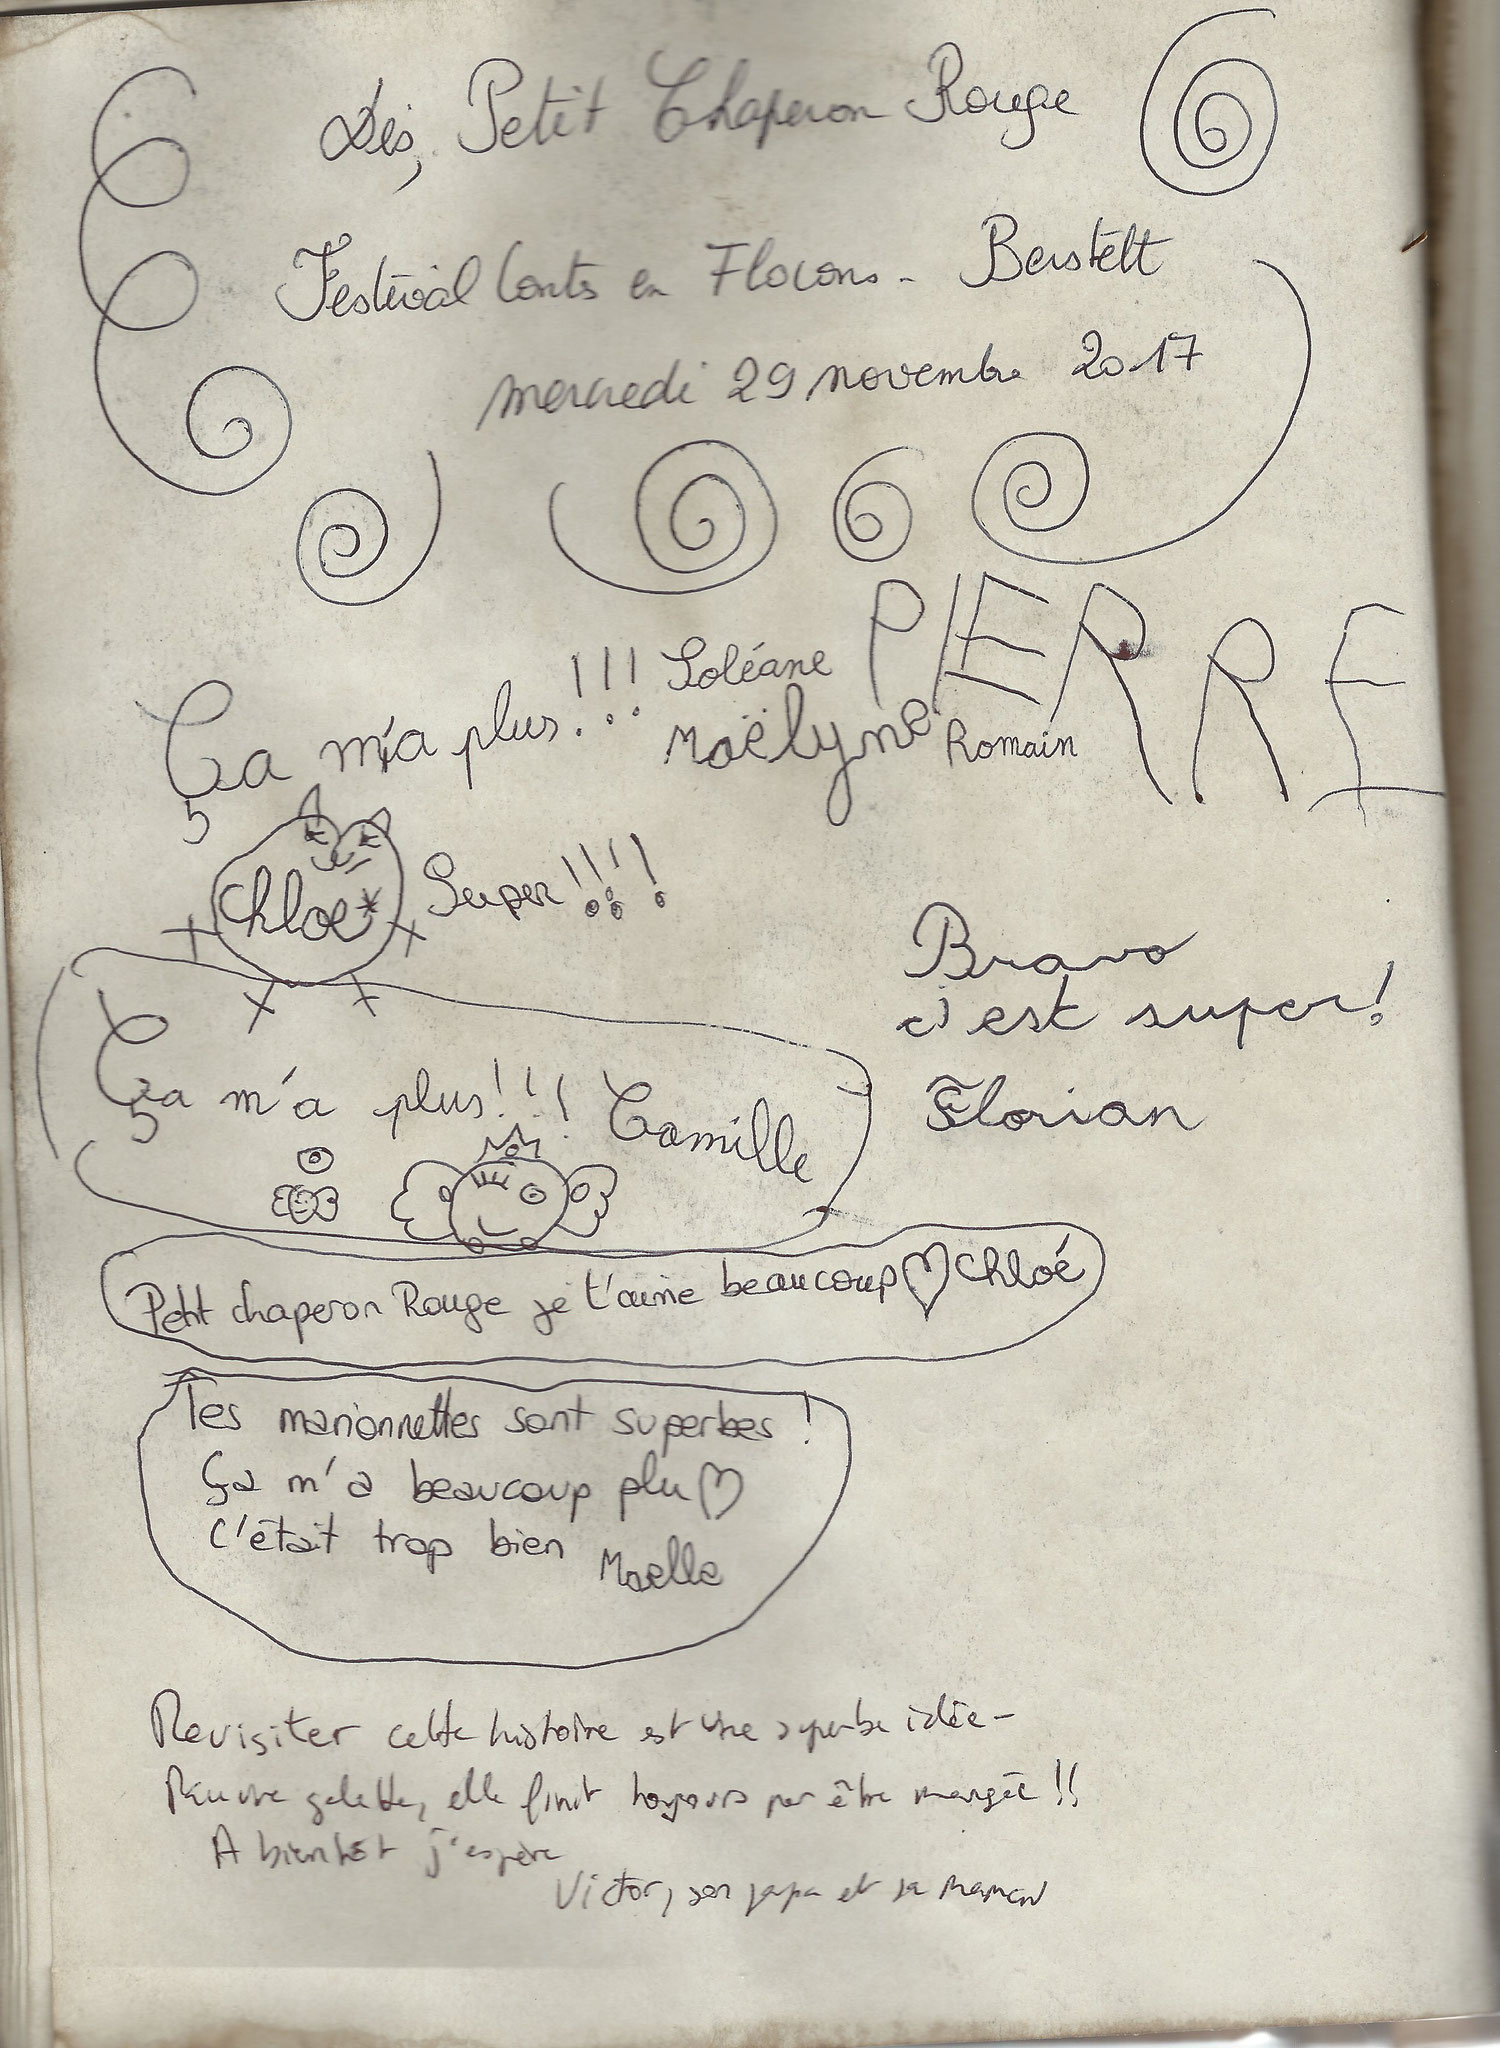 Dis, Petit Chaperon Rouge
Festival Conts en Flocons - Berstett
mercredi 29 novembre 2017
Ça m'a plus!!! Loléane
Maëlyne
Romain
PIERRE
Chloé* Super!!!!
Bravo
c'est super!
Florian
Ça m'a plus!!! Camille
Petit chaperon Rouge je t'aime beaucoup ♡ Chloé
Tes marionnettes sont superbes !
Ça m'a beaucoup plu ♡
C'était trop bien Maelle
Revisiter cette histoire est une superbe idée -
Pauvre galette, elle finit toujours par être mangée !!
A bientôt j'espère
Victor, son papa et sa maman